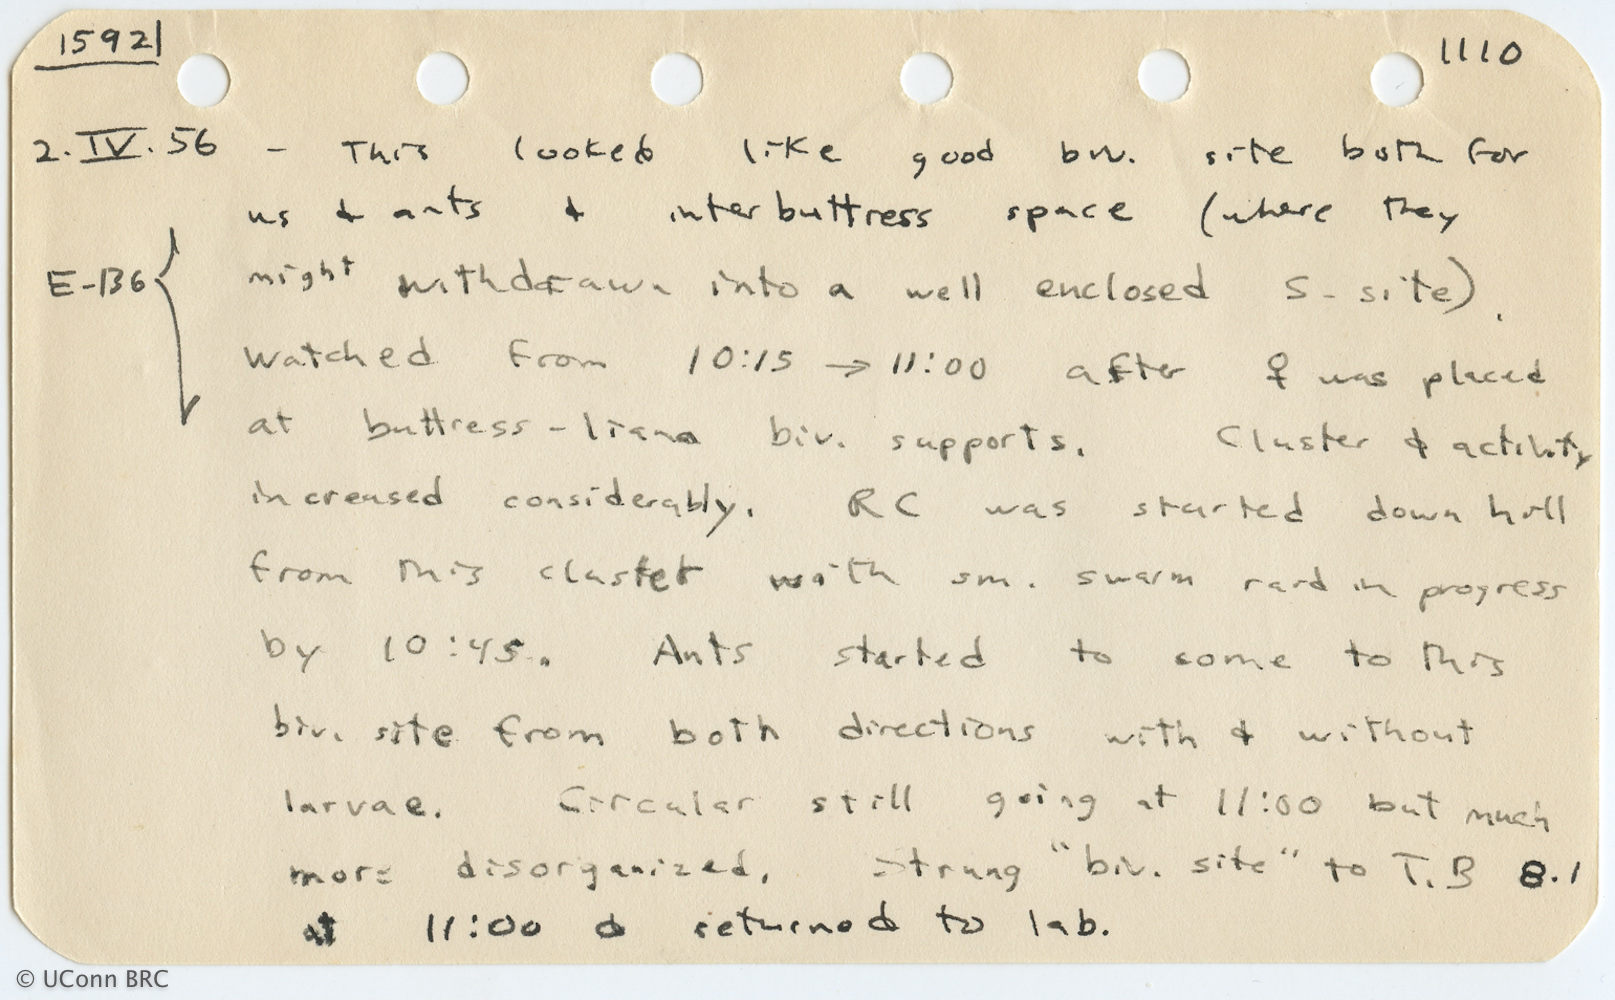 15921
1110
2.IV.56 - This looked like good biv. site both for
us & ants & interbuttress space (where they
E-B6 might withdrawn into a well enclosed S-site).
watched from 10:15 → 11:00 after ♀ was placed
at buttress-liana biv. supports. Cluster & activity
increased considerably. RC was started down hill
from this cluster with sm. swarm raid in progress
by 10:45. Ants started to come to this
biv. site from both directions with & without
larvae. Circular still going at 11:00 but much
more disorganized. Strung "biv. site" to T.B 8.1
at 11:00 & returned to lab.
© UConn BRC